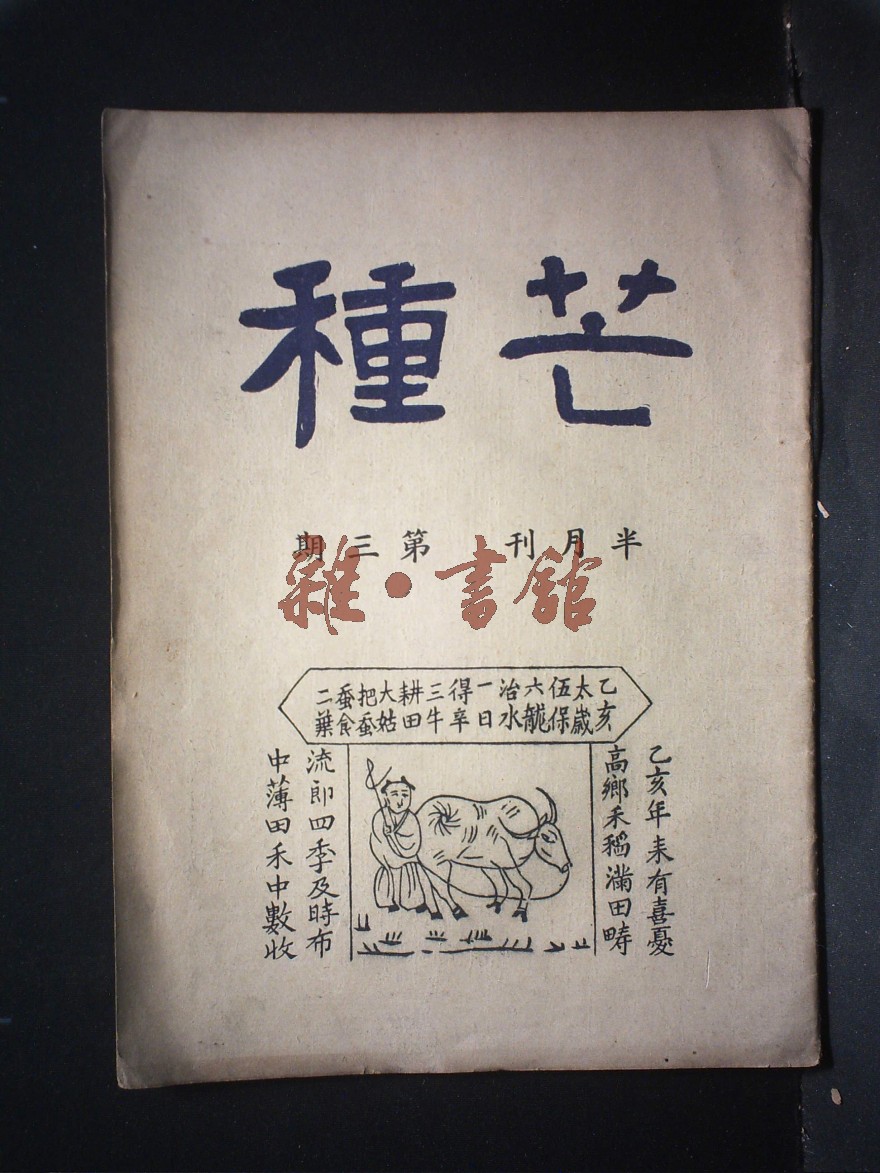 芒種
半月刊 第三期
雜·書館
乙亥
太歲
伍保
六龍
治水
一日
得辛
三牛
耕田
大姑
把蚕
蚕食
二葉
乙亥年来有喜憂
高鄉禾稻滿田疇
流郎四季及時布
中薄田禾中數收